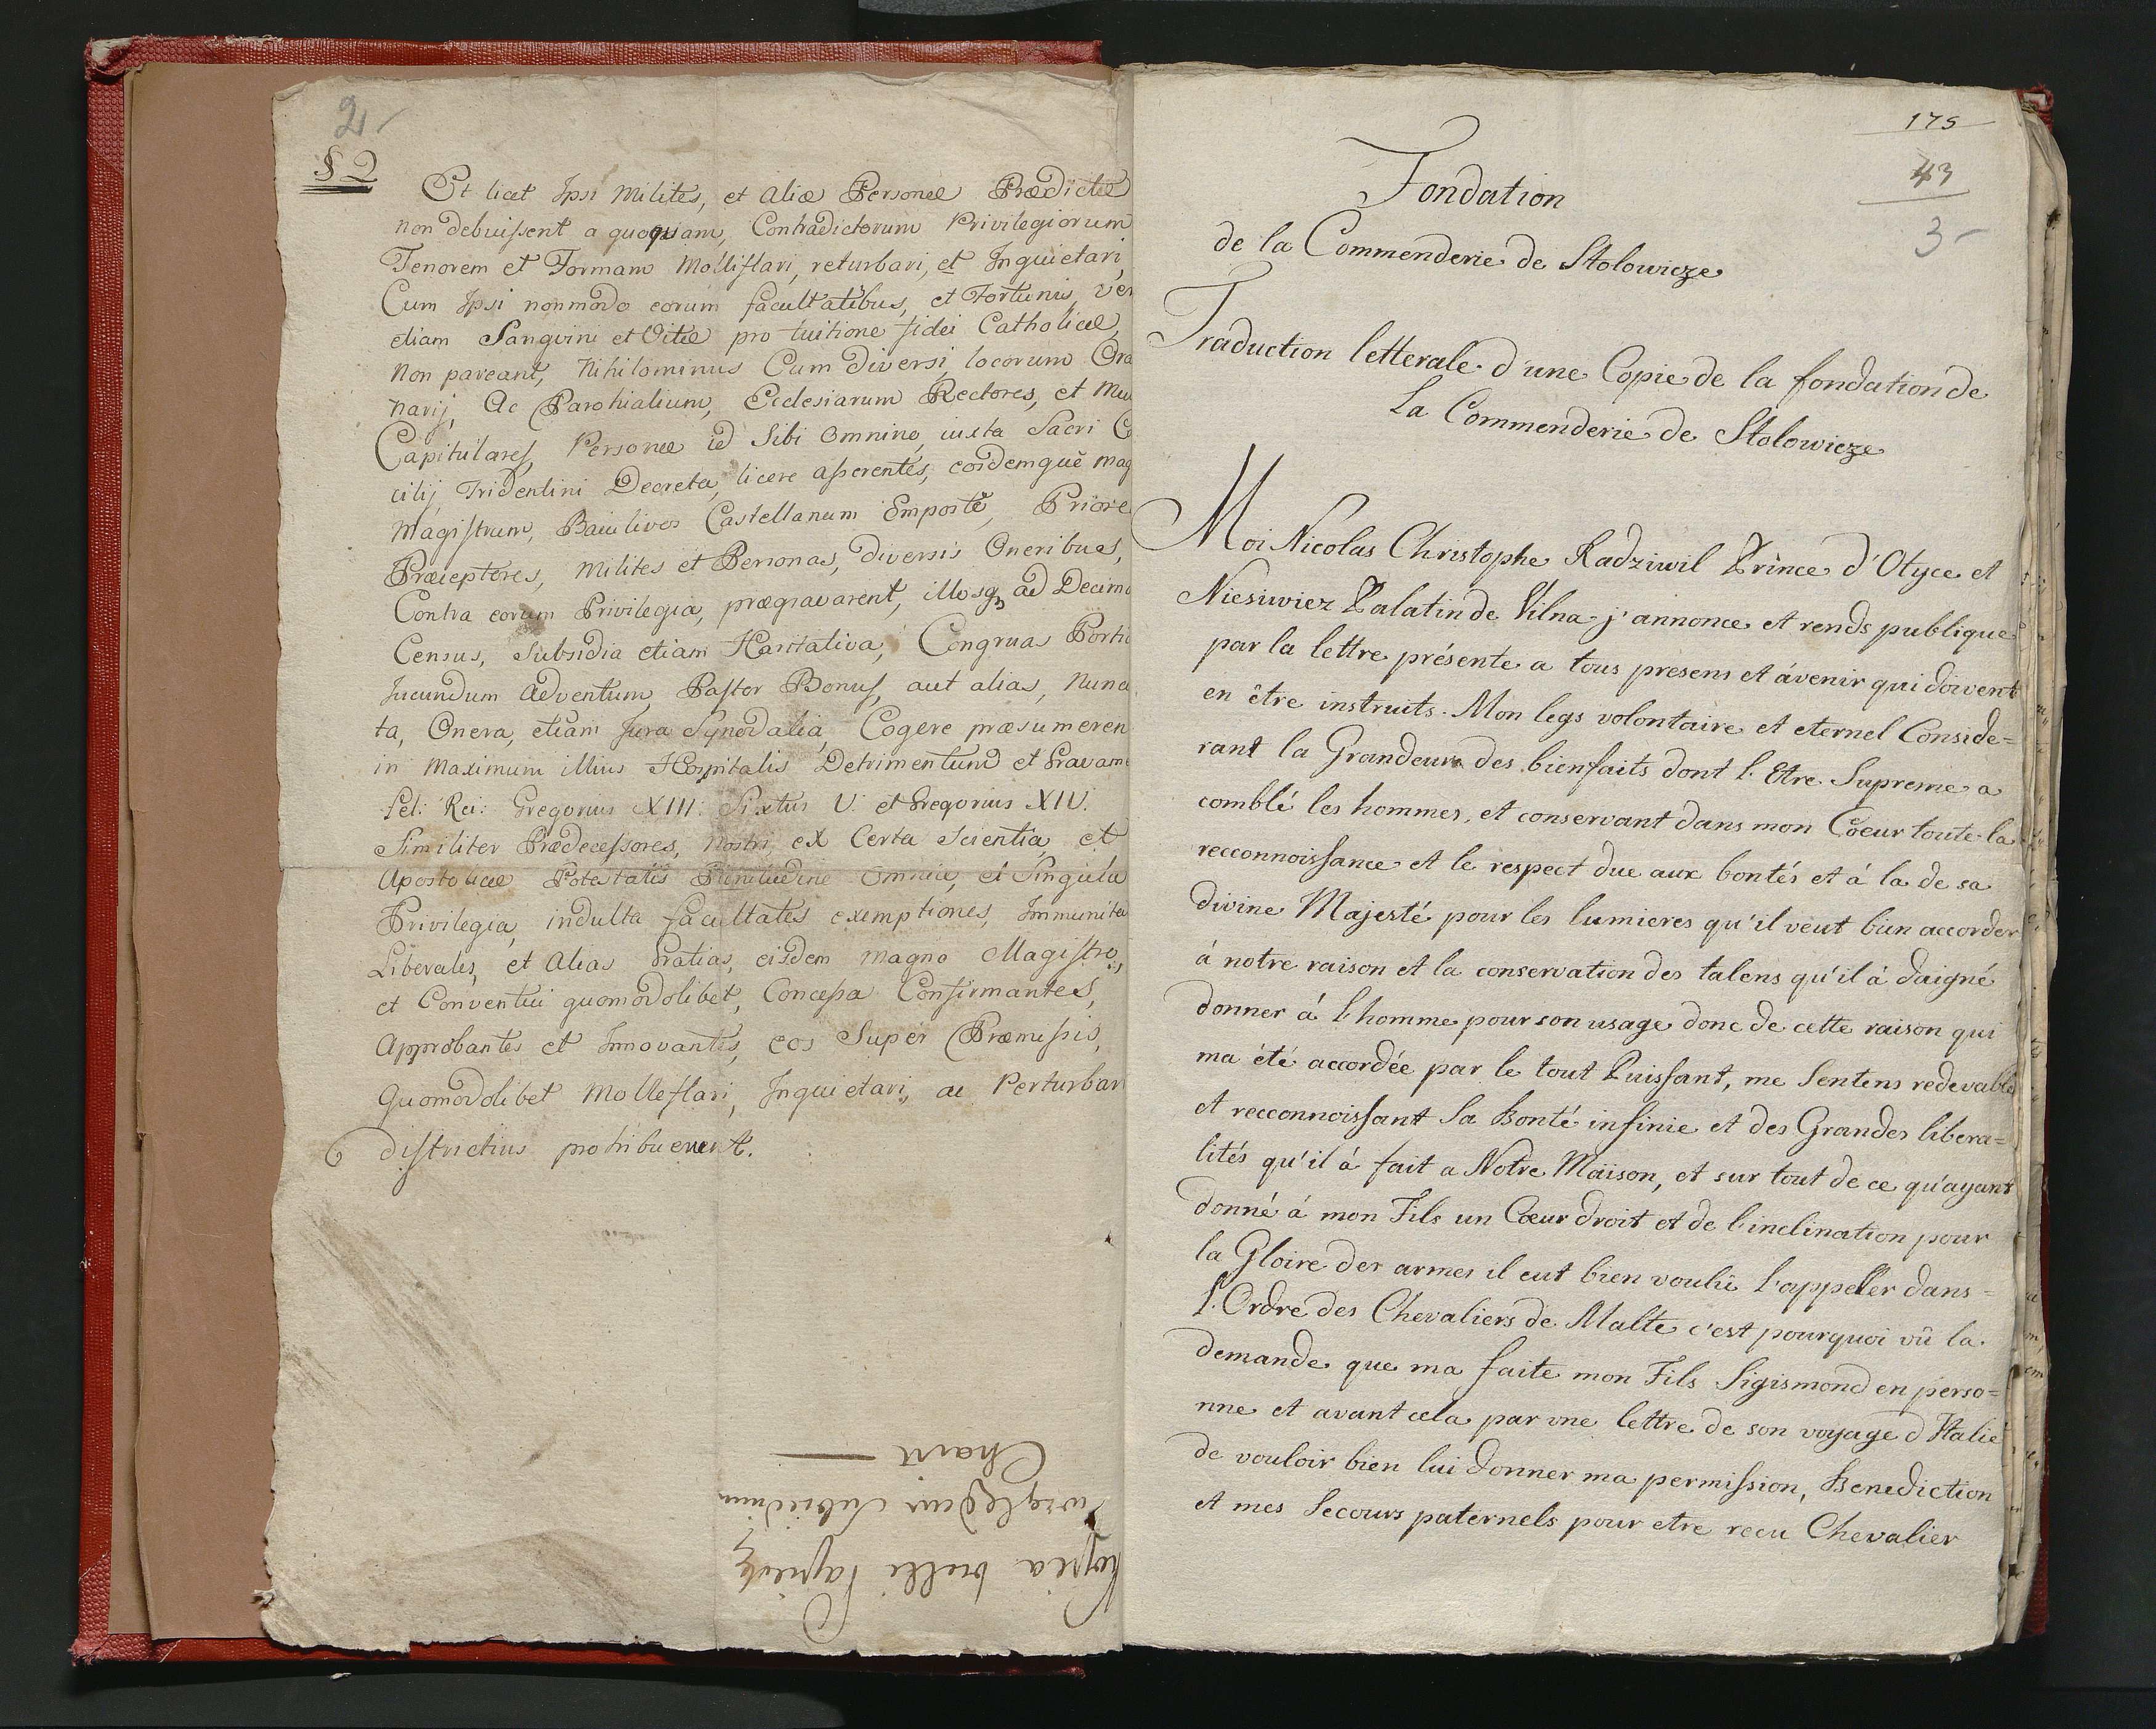 2
§ 2
Et licet Ipsi Milites, et aliæ Personæ Prædictæ
non debuissent a quoquam, Contradictorum Privilegiorum
Tenorem et Formam Mollistari, returbari, et Inquietari,
Cum Ipsi nonmodo eorum facultatibus, et Fortunis, ve
etiam Sangvini et Vitæ pro tuitione fidei Catholicæ,
Non paveant, Nihilominus Cum diversi, locorum Ora
narij, Ac Parohialium, Ecclesiarum Rectores, et Mu
Capitulares, Personæ id Sibi Omnino, iuxta Sacri Co
cilij Tridentini Decreta, licere asserentes, eosdemque mag
Magistrum, Baiulivos Castellanum Emposte, Priore
Præceptores, Milites et Personas, diversis Oneribus,
Contra eorum Privilegia, prægravarent, illosq3 ad Decima
Census, Subsidia etiam Haritativa, Congruas Portio
Jucundum Adventum, Pastor Bonus, aut alias, nunc
ta, Onera, etiam Jura Synodalia, Cogere præsumeren
in Maximum illius Hospitalis Detrimentum et Gravam
fel: Rei: Gregorius XIII: Sixtus V: et Gregorius XIV.
Similiter Prædecessores, nostri, ex Certa Scientia, et
Apostolicæ Potestatis Plenitudine Omnia, et Singula
Privilegia, indulta facultates exemptiones, Immunita
Liberales, et Alias Gratias, eisdem Magno Magistro,
et Conventui quomodolibet, Concessa Confirmantes,
Approbantes et Innovantes, eos Super Præmissis,
Quomodolibet Mollestari, Inquietari, ac Perturbari
districtius prohibuerunt.
Kopia bulli Papieskiey
względem
175
43
3
Fondation
de la Commenderie de Stolowicze
Traduction letterale d'une Copie de la fondation de
La Commenderie de Stolowicze
Moi Nicolas Christophe Radziwil Prince d'Olyce et
Niesiwiez Palatin de Vilna j'annonce et rends publique
par la lettre présente a tous presens et ávenir qui doivent
en être instruits. Mon legs volontaire et eternel Conside=
rant la Grandeur des bienfaits dont l'Etre Supreme a
comblé les hommes, et conservant dans mon Coeur toute la
recconnoissance et le respect due aux bontés et á la de sa
divine Majesté pour les lumieres qu'il veut bien accorder
á notre raison et la conservation des talens qu'il á daigné
donner á l'homme pour son usage donc de cette raison qui
ma été accordée par le tout Puissant, me Sentens redevable
et recconnoissant Sa Bonté infinie et des Grandes libera=
lités qu'il á fait a Notre Maison, et sur tout de ce qu'ayant
donné á mon Fils un Coeur droit et de l'inclination pour
la Gloire der armes il eut bien voulû l'appeller dans=
l'Ordre des Chevaliers de Malte c'est pourquoi vû la
demande que ma faite mon Fils Sigismond en perso=
nne et avant cela par une lettre de son voyage d'Italie
de vouloir bien lui donner ma permission, Benediction
et mes Secours paternels pour etre recu Chevalier